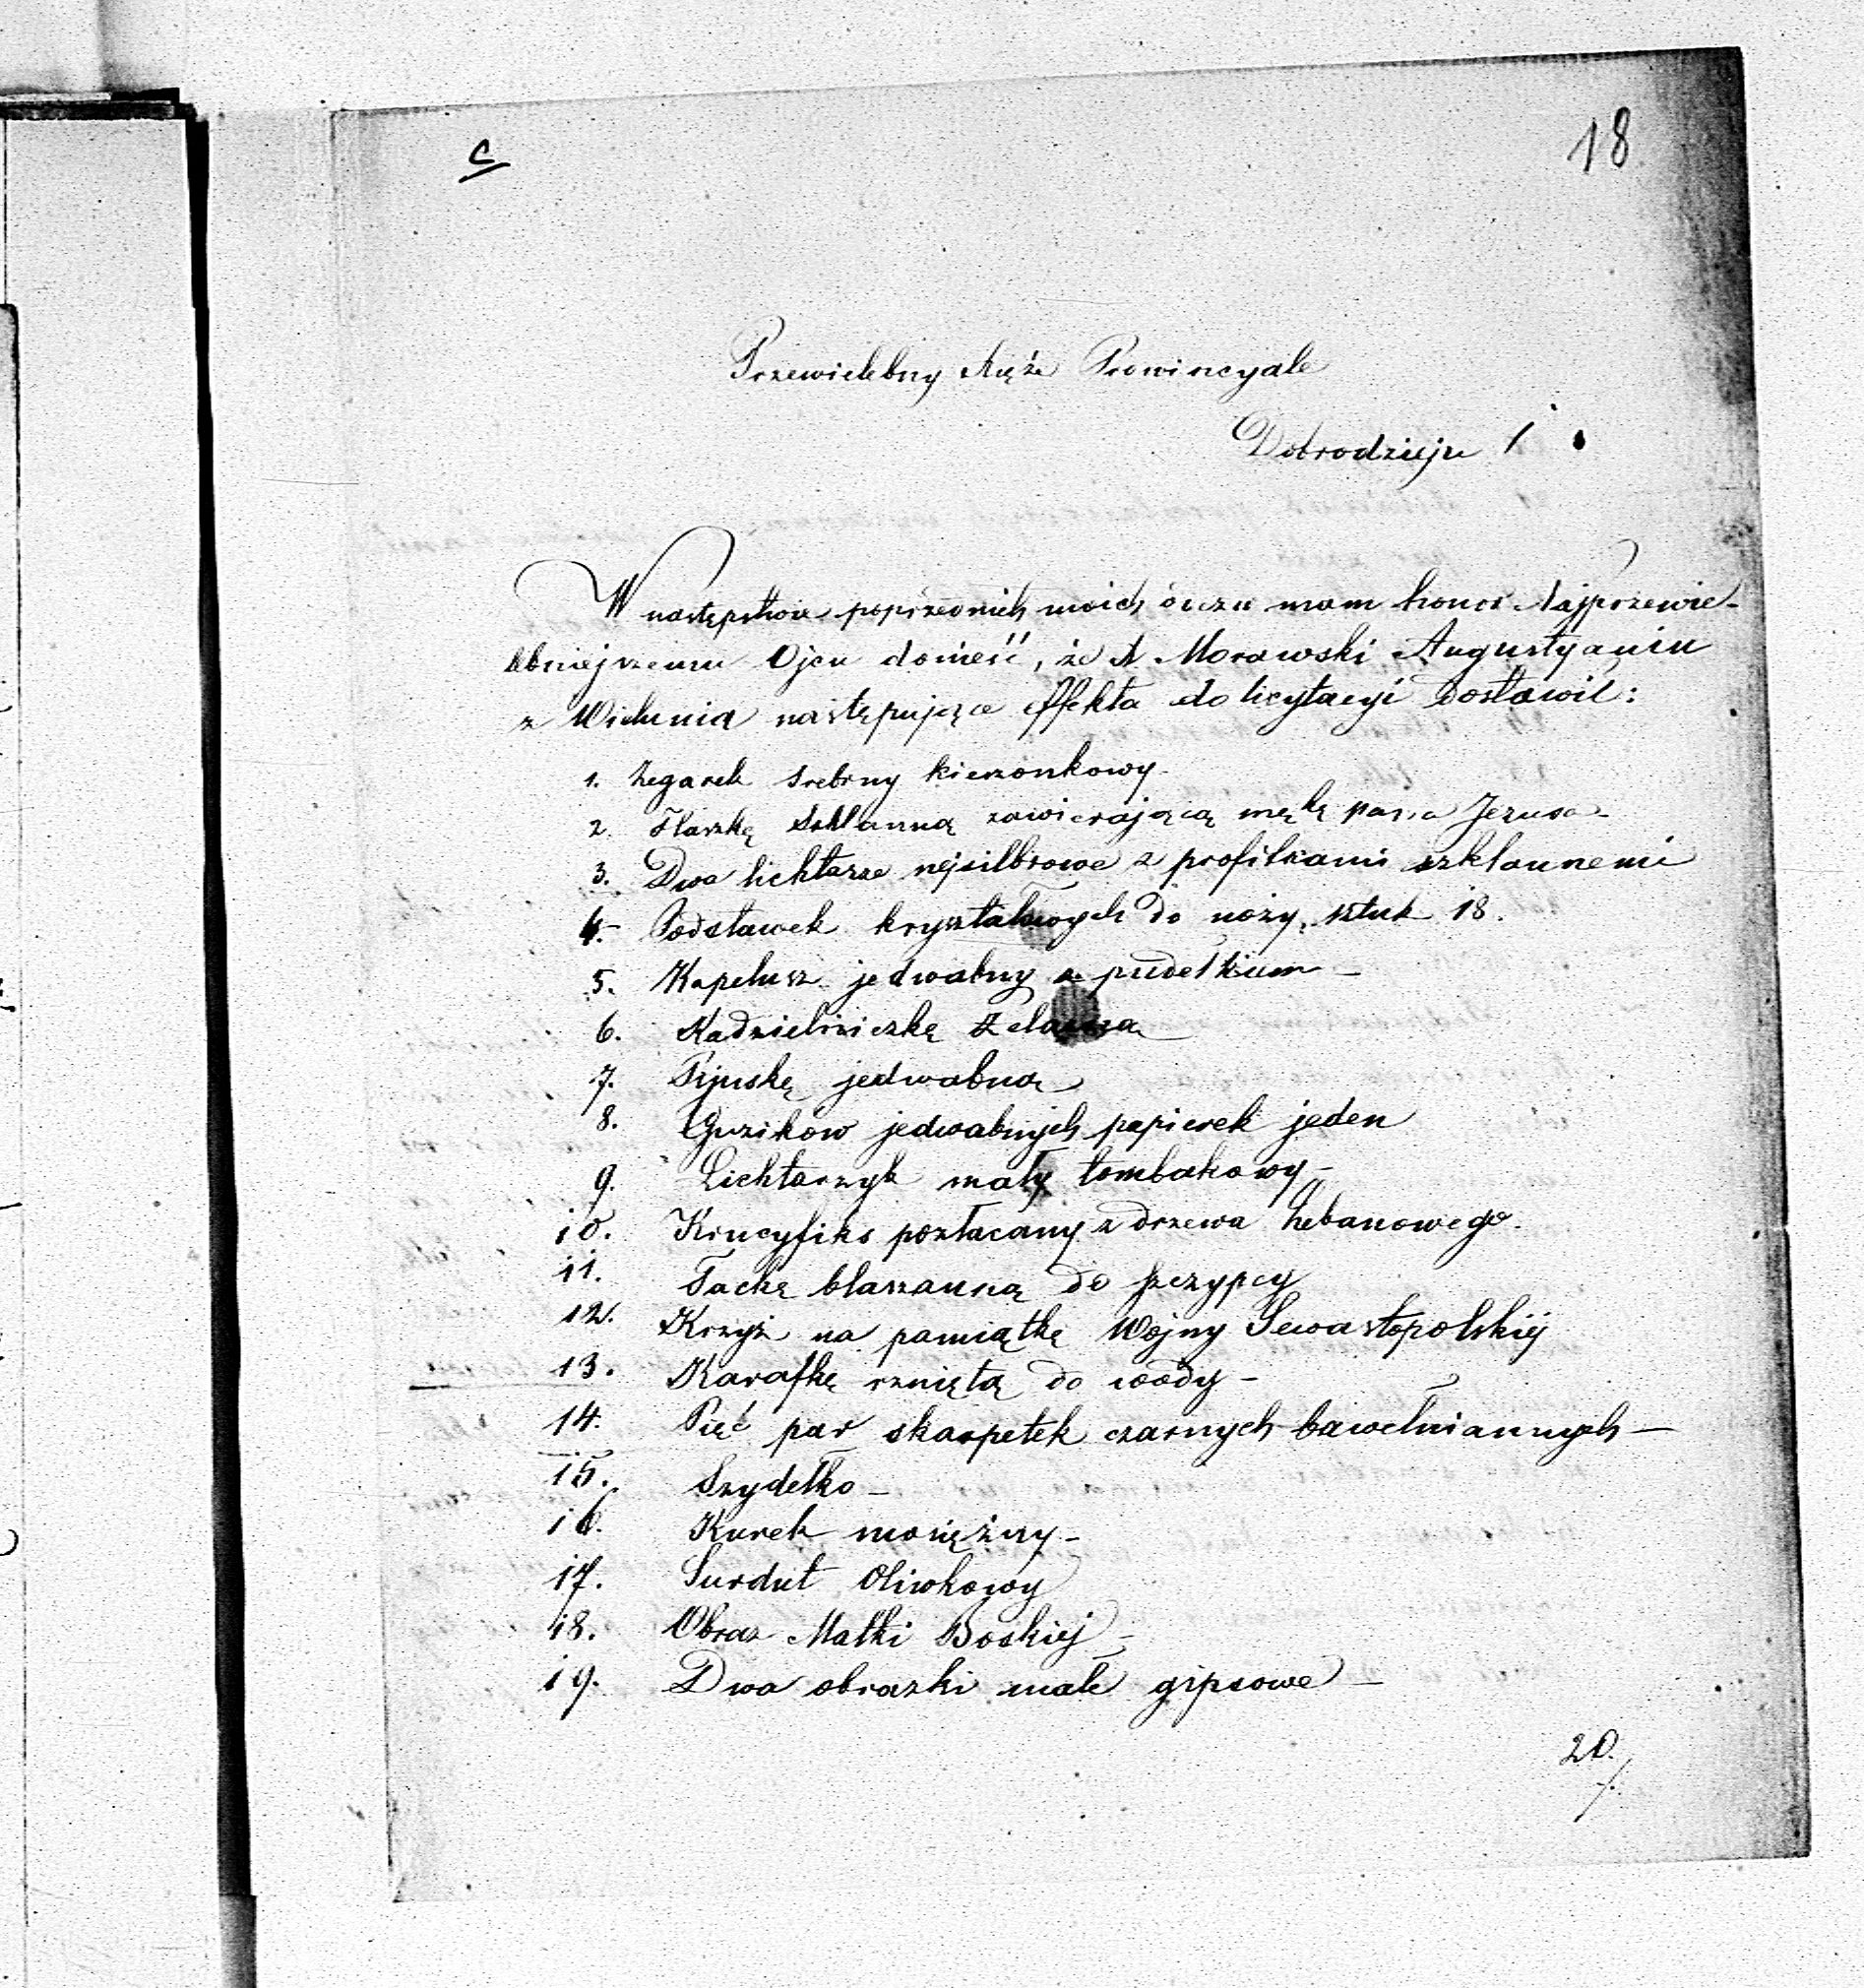 c
18
Przewielebny Xięże Prowincyale
Dobrodzieju !
W następstwie poprzednich moich mam honor Najprzewie-
lebniejszemu Ojcu donieść, że X Morawski Augustyanin
z Wielunia następujące effekta do licytacyi dostawił:
1. Zegarek srebrny kieszonkowy-
2. Flaszkę szklanną zawierającą mękę pana Jezusa-
3. Dwa lichtarze nejsilbrowe z profitkami szklannemi
4. Podstawek kryształowych do noży, sztuk 18.
5. Kapelusz jedwabny z pudełkiem-
6. Kadzielniczkę żelazną
7. Pijuskę jedwabną
8. Guzików jedwabnych papierek jeden
9. Lichtarzyk mały tombakowy-
10. Krucyfiks pozłacany z drzewa hebanowego.
11. Tackę blaszanną do szczypcy
12. Krzyż na pamiątkę Wojny Sewastopolskiej
13. Karafkę rzniętą do wody-
14. Pięć par skarpetek czarnych bawełniannych-
15. Szydełko-
16. Kurek mosiężny-
17. Surdut Oliwkowy
18. Obraz Matki Boskiej-
19. Dwa obrazki małe gipsowe-
20.